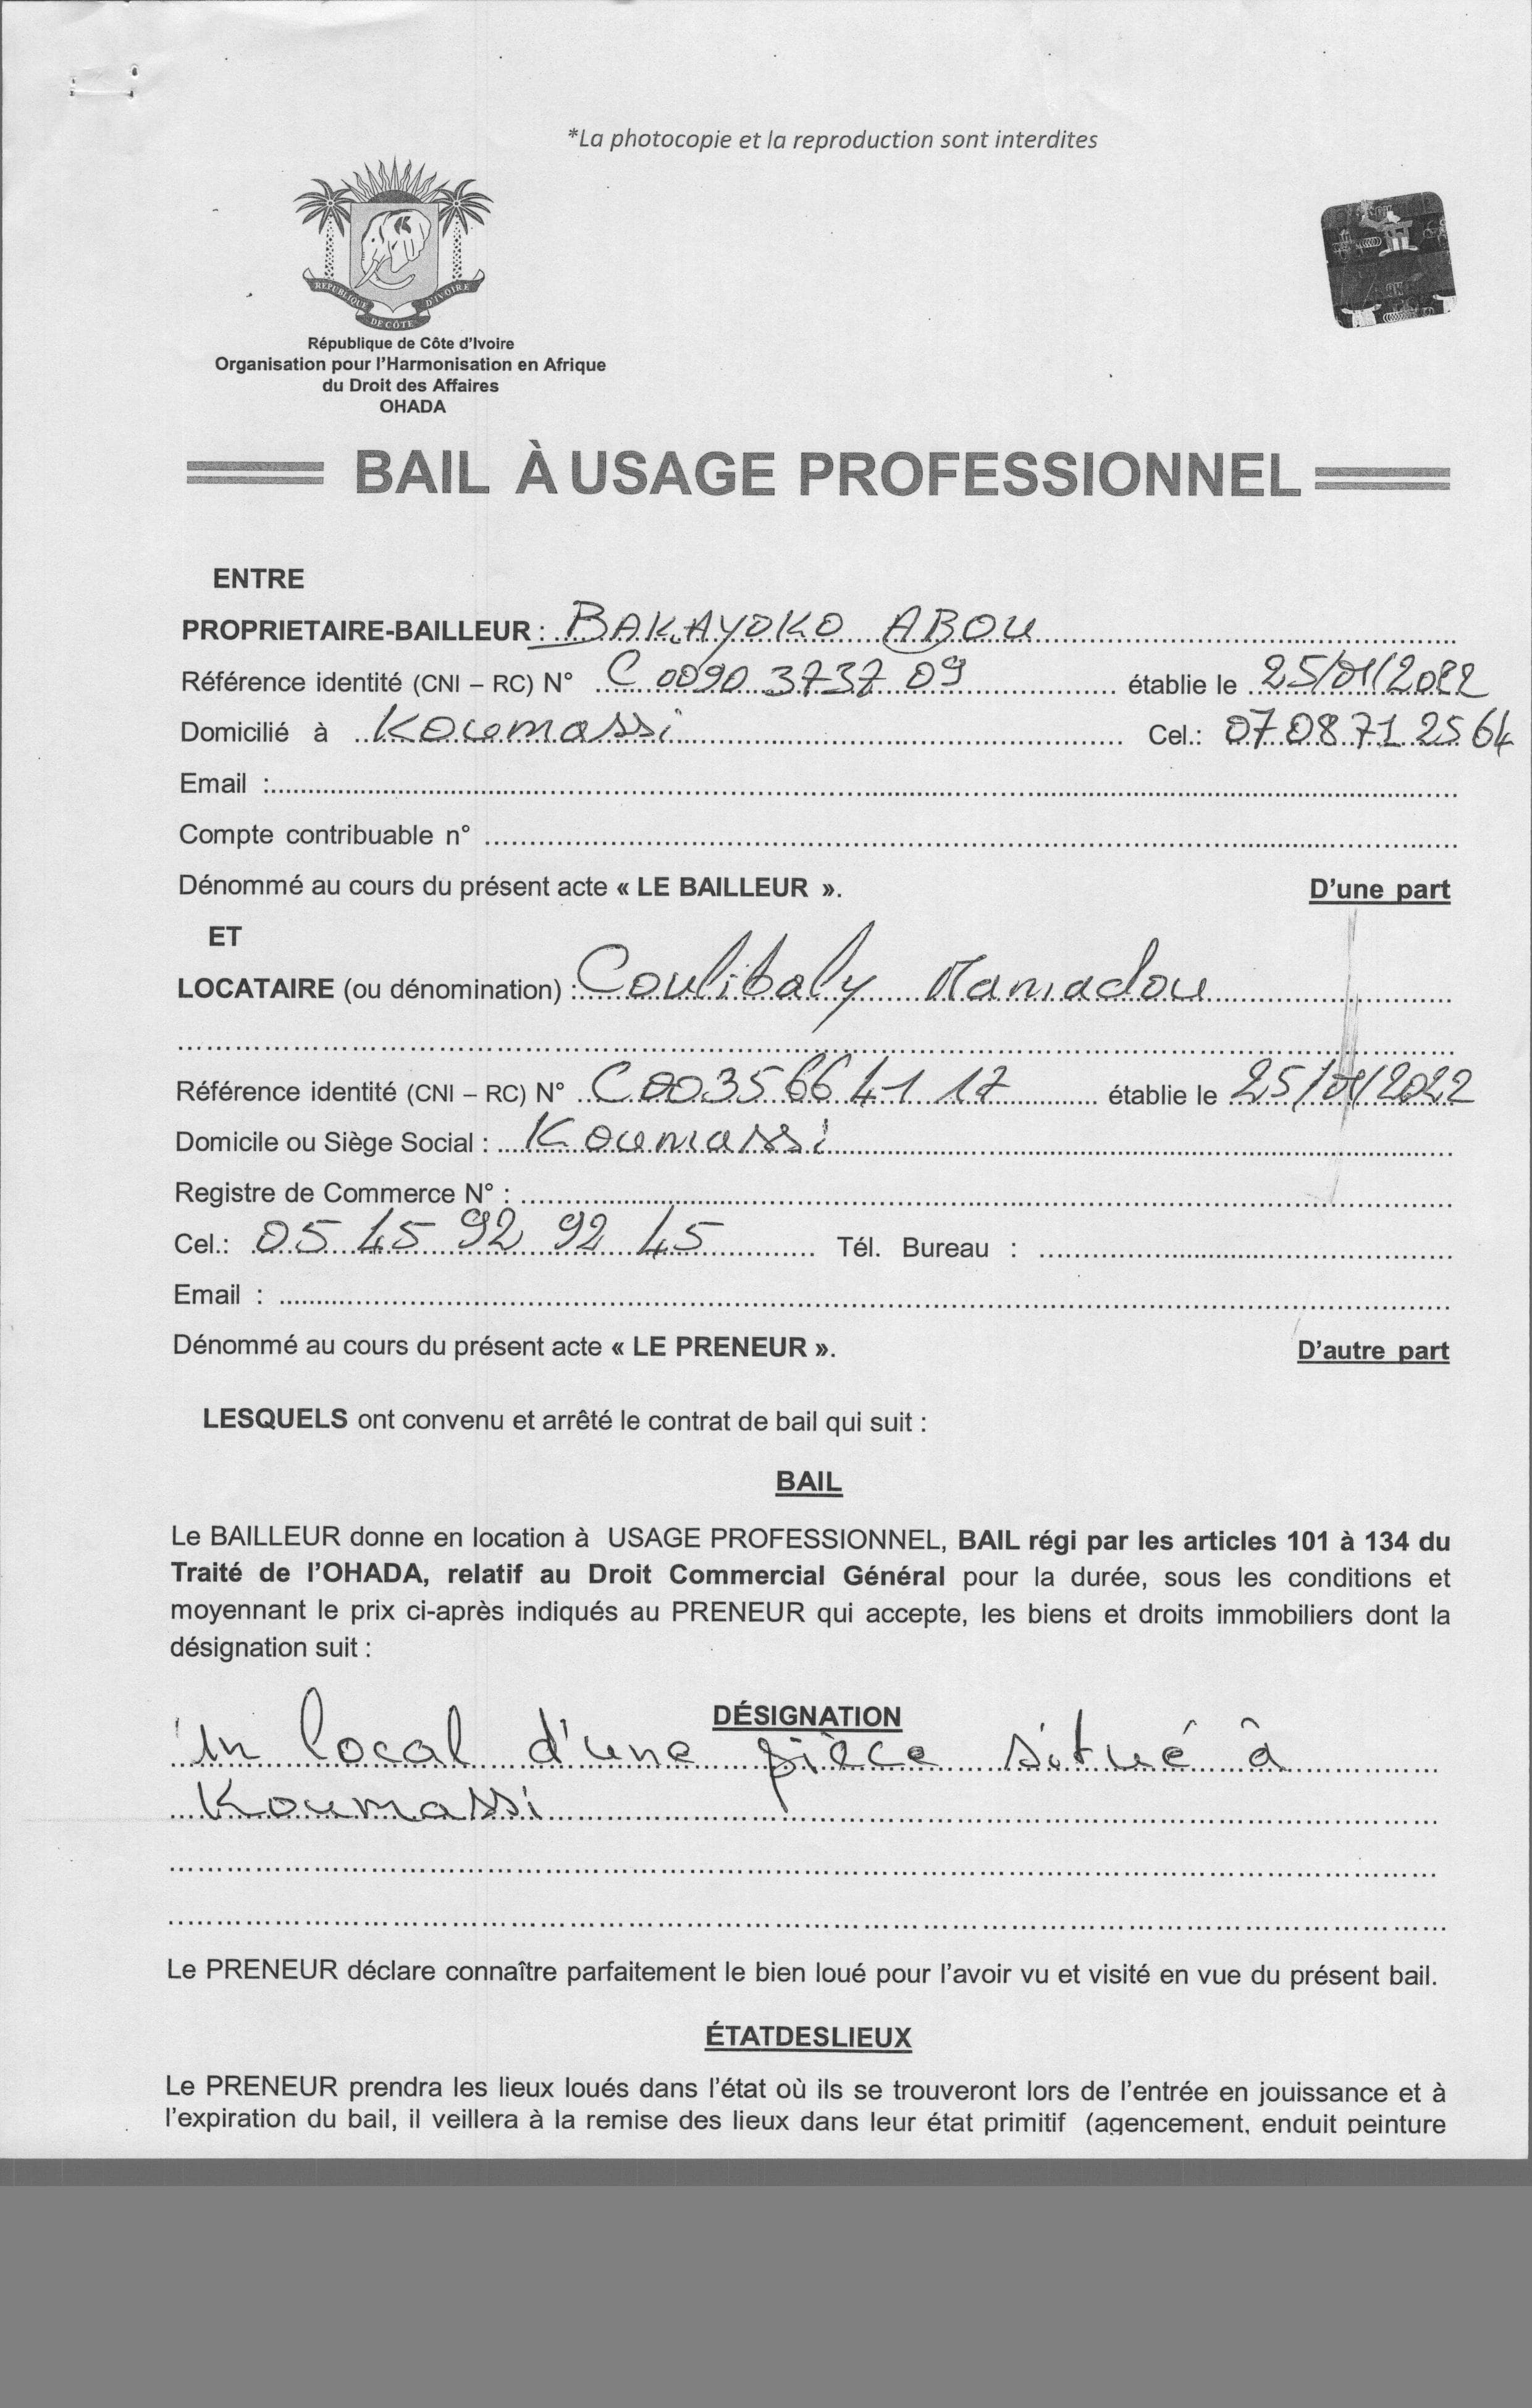 *La photocopie et la reproduction sont interdites
REPUBLIQUE DE CÔTE D'IVOIRE
République de Côte d'Ivoire
Organisation pour l'Harmonisation en Afrique
du Droit des Affaires
OHADA
BAIL À USAGE PROFESSIONNEL
ENTRE
PROPRIETAIRE-BAILLEUR : BAKAYOKO ABOU
Référence identité (CNI – RC) N° C 0090 3737 09 établie le 25/01/2022
Domicilié à Koumassi Cel.: 07 08 71 25 64
Email :
Compte contribuable n°
Dénommé au cours du présent acte « LE BAILLEUR ». D'une part
ET
LOCATAIRE (ou dénomination) : Coulibaly Mamadou
Référence identité (CNI – RC) N° C 0035 66 41 17 établie le 25/01/2022
Domicile ou Siège Social : Koumassi
Registre de Commerce N° :
Cel.: 05 45 92 92 45 Tél. Bureau :
Email :
Dénommé au cours du présent acte « LE PRENEUR ». D'autre part
LESQUELS ont convenu et arrêté le contrat de bail qui suit :
BAIL
Le BAILLEUR donne en location à USAGE PROFESSIONNEL, BAIL régi par les articles 101 à 134 du
Traité de l'OHADA, relatif au Droit Commercial Général pour la durée, sous les conditions et
moyennant le prix ci-après indiqués au PRENEUR qui accepte, les biens et droits immobiliers dont la
désignation suit :
DÉSIGNATION
Un local d'une pièce situé à
Koumassi
Le PRENEUR déclare connaître parfaitement le bien loué pour l'avoir vu et visité en vue du présent bail.
ÉTATDESLIEUX
Le PRENEUR prendra les lieux loués dans l'état où ils se trouveront lors de l'entrée en jouissance et à
l'expiration du bail, il veillera à la remise des lieux dans leur état primitif (agencement, enduit peinture